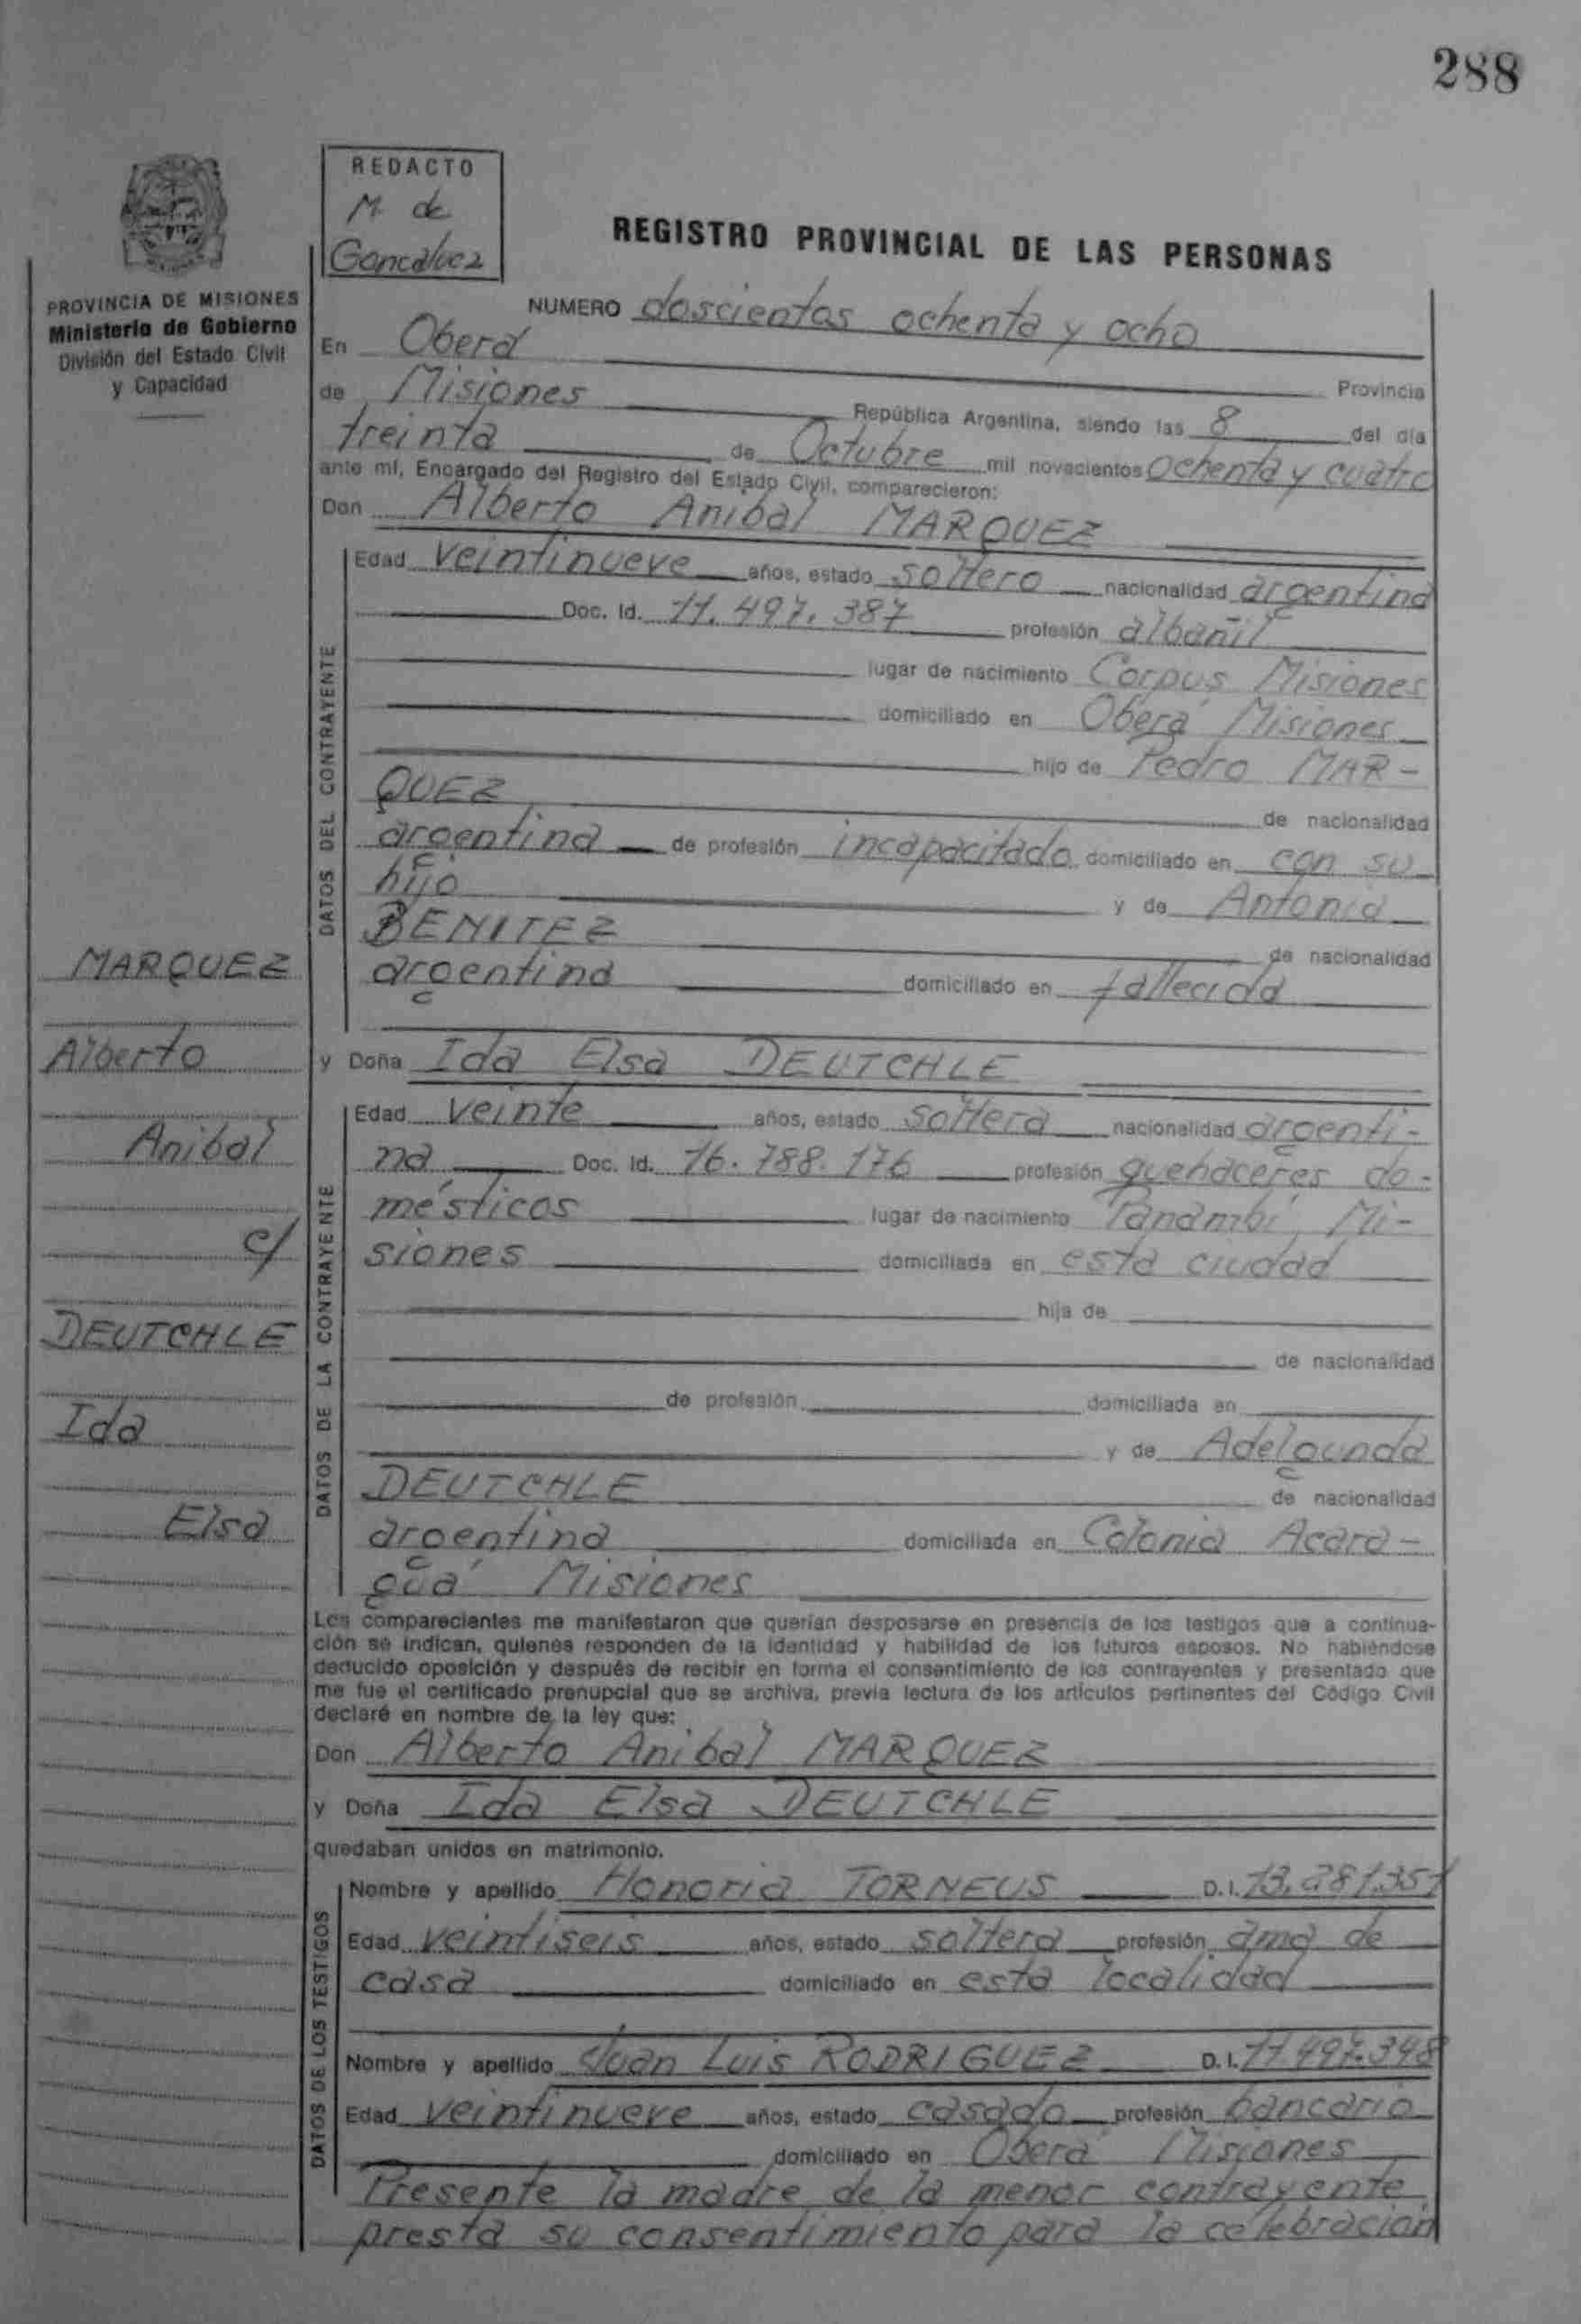 288
REDACTO
M. de
Goncalvez
REGISTRO PROVINCIAL DE LAS PERSONAS
PROVINCIA DE MISIONES
Ministerio de Gobierno
División del Estado Civil
y Capacidad
NUMERO doscientos ochenta y ocho
En Oberá Provincia
de Misiones República Argentina, siendo las 8 del día
treinta de Octubre mil novecientos ochenta y cuatro
ante mí, Encargado del Registro del Estado Civil, comparecieron:
Don Alberto Anibal MARQUEZ
DATOS DEL CONTRAYENTE
Edad veintinueve años, estado soltero nacionalidad argentina
Doc. Id. 11.497.387 profesión albañil
lugar de nacimiento Corpus Misiones
domiciliado en Oberá Misiones
hijo de Pedro MAR-
QUEZ de nacionalidad
argentina de profesión incapacitado domiciliado en con su
hijo y de Antonia
BENITEZ de nacionalidad
argentina domiciliado en fallecida
y Doña Ida Elsa DEUTCHLE
DATOS DE LA CONTRAYENTE
Edad veinte años, estado soltera nacionalidad argenti-
na, Doc. Id. 16.788.176 profesión quehaceres do-
mésticos lugar de nacimiento Panambí, Mi-
siones domiciliada en esta ciudad
hija de
de nacionalidad
de profesión domiciliada en
y de Adelgunda
DEUTCHLE de nacionalidad
argentina domiciliada en Colonia Acara-
guá Misiones
Los comparecientes me manifestaron que querían desposarse en presencia de los testigos que a continua-
ción se indican, quienes responden de la identidad y habilidad de los futuros esposos. No habiéndose
deducido oposición y después de recibir en forma el consentimiento de los contrayentes y presentado que
me fue el certificado prenupcial que se archiva, previa lectura de los artículos pertinentes del Código Civil
declaré en nombre de la ley que:
Don Alberto Anibal MARQUEZ
y Doña Ida Elsa DEUTCHLE
quedaban unidos en matrimonio.
DATOS DE LOS TESTIGOS
Nombre y apellido Honoria TORNEUS D.I. 13.281.351
Edad veintiseis años, estado soltera profesión ama de
casa domiciliado en esta localidad
Nombre y apellido Juan Luis RODRIGUEZ D.I. 11.497.348
Edad veintinueve años, estado casado profesión bancario
domiciliado en Oberá Misiones
Presente la madre de la menor contrayente
presta su consentimiento para la celebración
MARQUEZ
Alberto
Anibal
c/
DEUTCHLE
Ida
Elsa